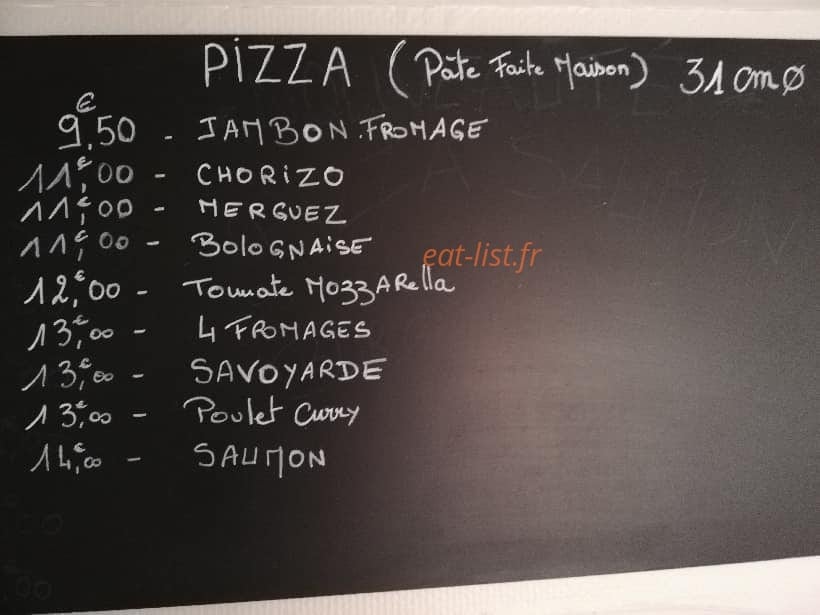 PIZZA (Pâte Faite Maison) 31cm Ø
9,€50 - JAMBON.FROMAGE
11,€00 - CHORIZO
11,€00 - MERGUEZ
11,€00 - BOLOGNAISE
eat-list.fr
12,€00 - Tomate MOZZARella
13,€00 - 4 FROMAGES
13,€00 - SAVOYARDE
13,€00 - Poulet Curry
14,€00 - SAUMON